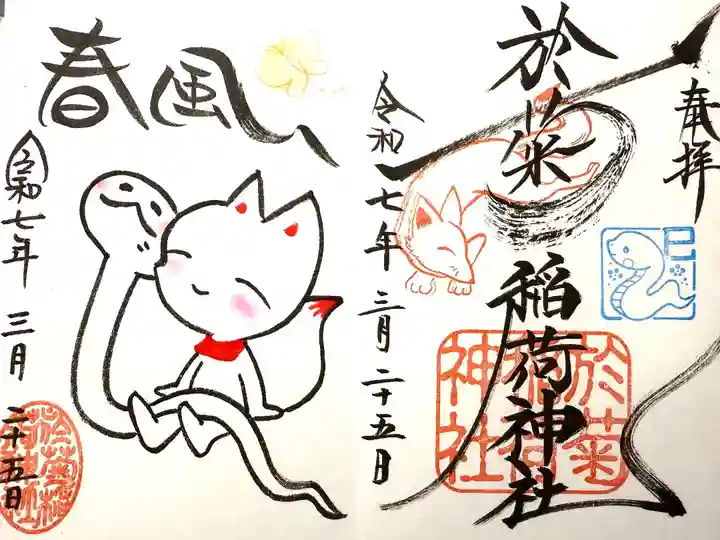 奉拝
於菊稲荷神社
令和七年三月二十五日
巳
於菊
稲荷
神社
春風
令和七年
三月
二十五日
於菊稲
荷神社